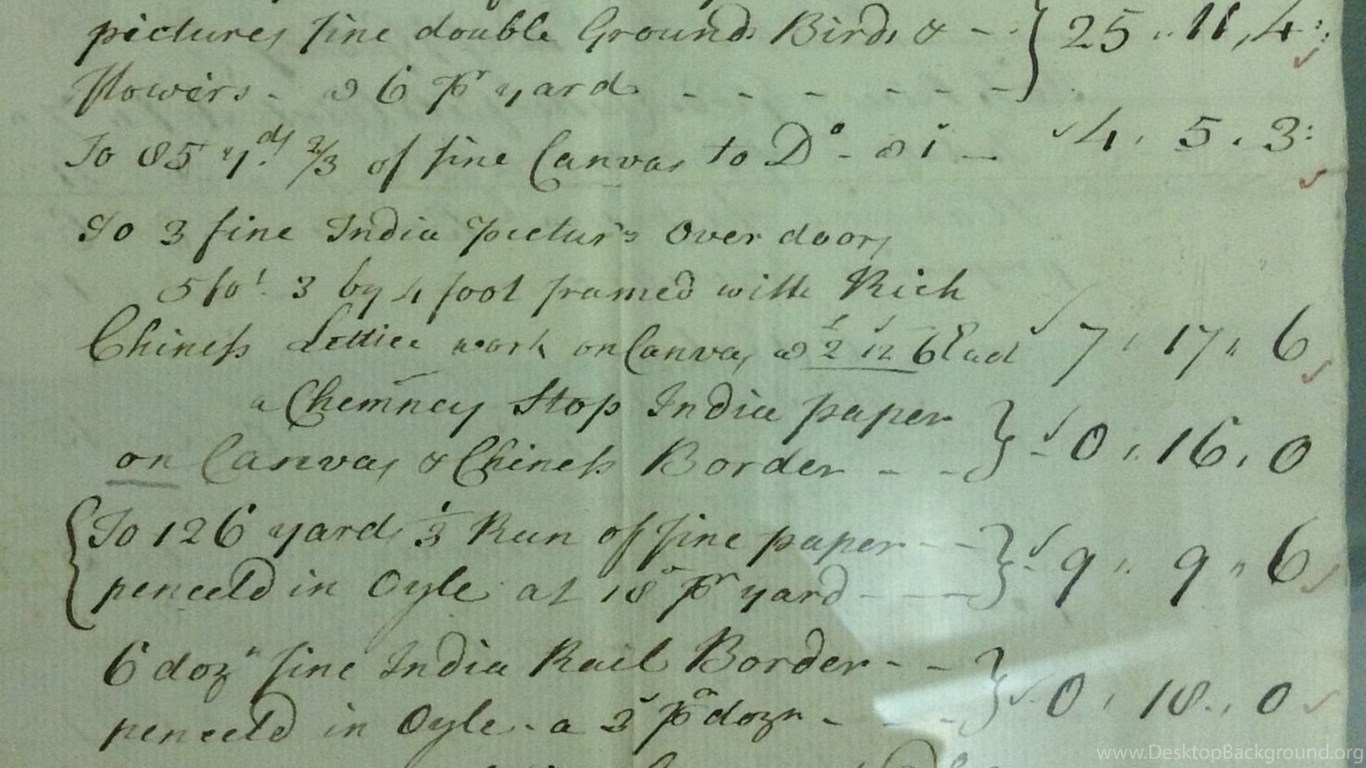 pictures fine double Ground Birds & - - } 25 .. 11 , 4 :
flowers - a 6 pr yard - - - - - -
To 85 yds 2/3 of fine Canvas to Do - a 1s - 4 , 5 , 3 :
To 3 fine India Pictur's Over doors
5 fot 3 by 4 foot framed with Rich
Chiness Lettice work on Canvas a £2 12s 6 Each 7 , 17 , 6
a Chemney Stop India paper
on Canvas & Chiness Border - - - } 0 , 16 , 0
{ To 126 yards 1/3 Run of fine paper - - } 9 , 9 , 6
penceld in Oyle at 18d pr yard - - -
6 dozn fine India Rail Border - - } 0 , 18 , 0
penceld in Oyle - a 3s pr dozn - - -
www.DesktopBackground.org